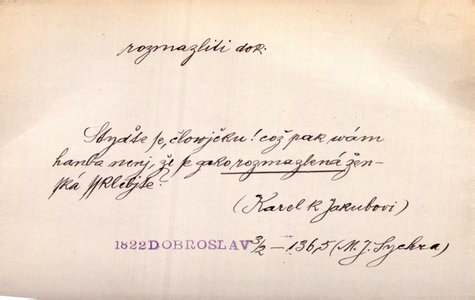 rozmazliti dok.
Styďte se, človjčku! což pak wám
hanba nenj, že se gako rozmazlená žen-
ská šklebjte?
(Karel k Jakubovi)
1822 DOBROSLAV 3/2 – 136,5 (M. J. Sychra)